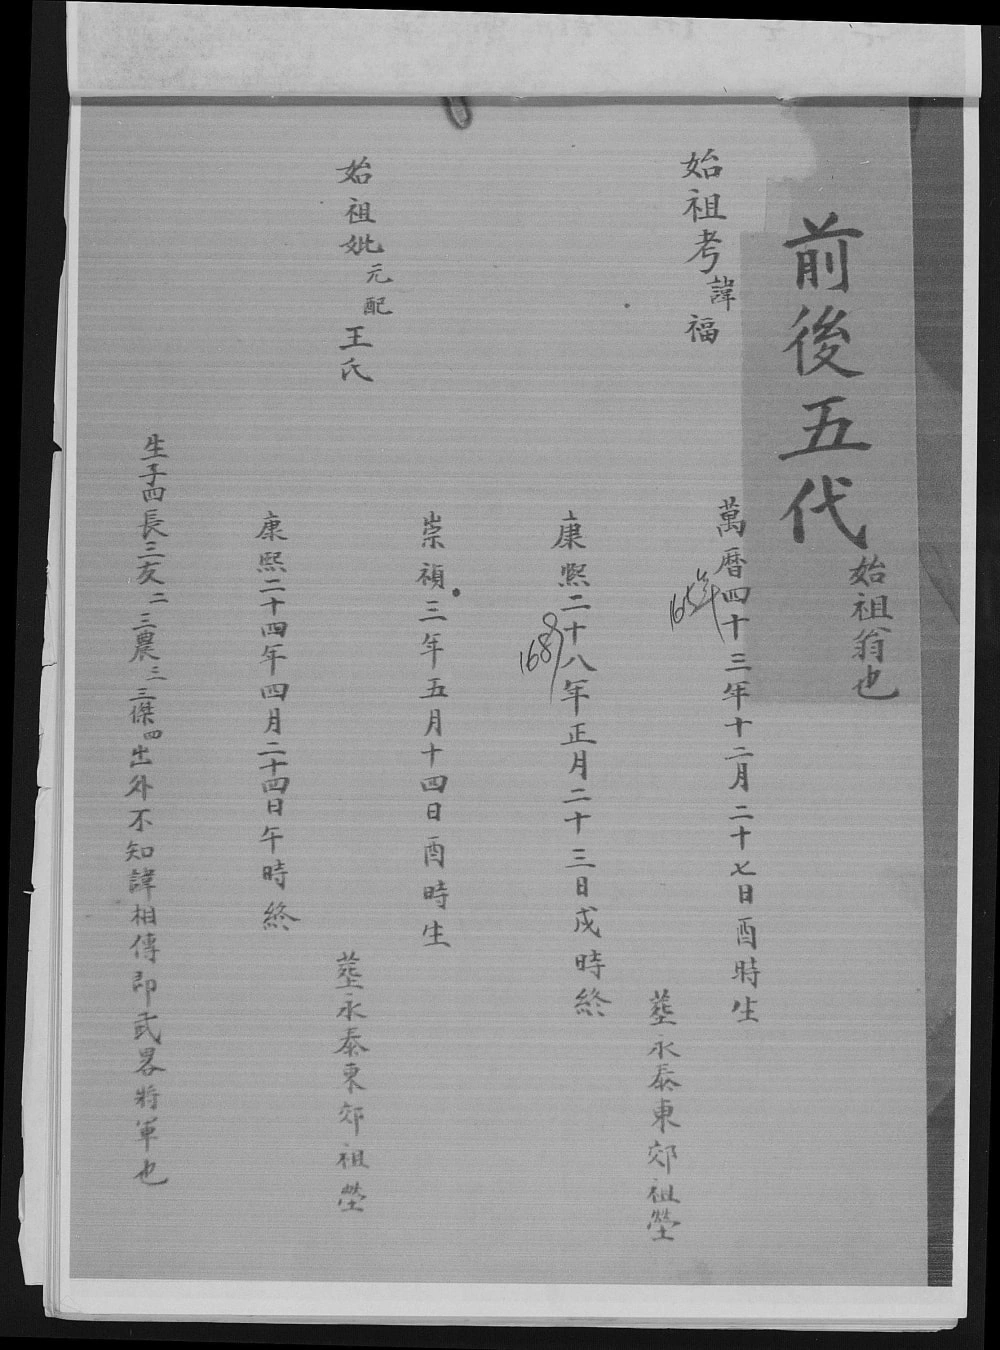 前後五代
始祖翁也
始祖考諱福
萬曆四十三年十二月二十七日酉時生
康熙二十八年正月二十三日戌時終
1689
塟永泰東郊祖塋
始祖妣元配王氏
崇禎三年五月十四日酉時生
康熙二十四年四月二十四日午時終
塟永泰東郊祖塋
生子四長三友二三農三三傑四出外不知諱相傳即武畧將軍也